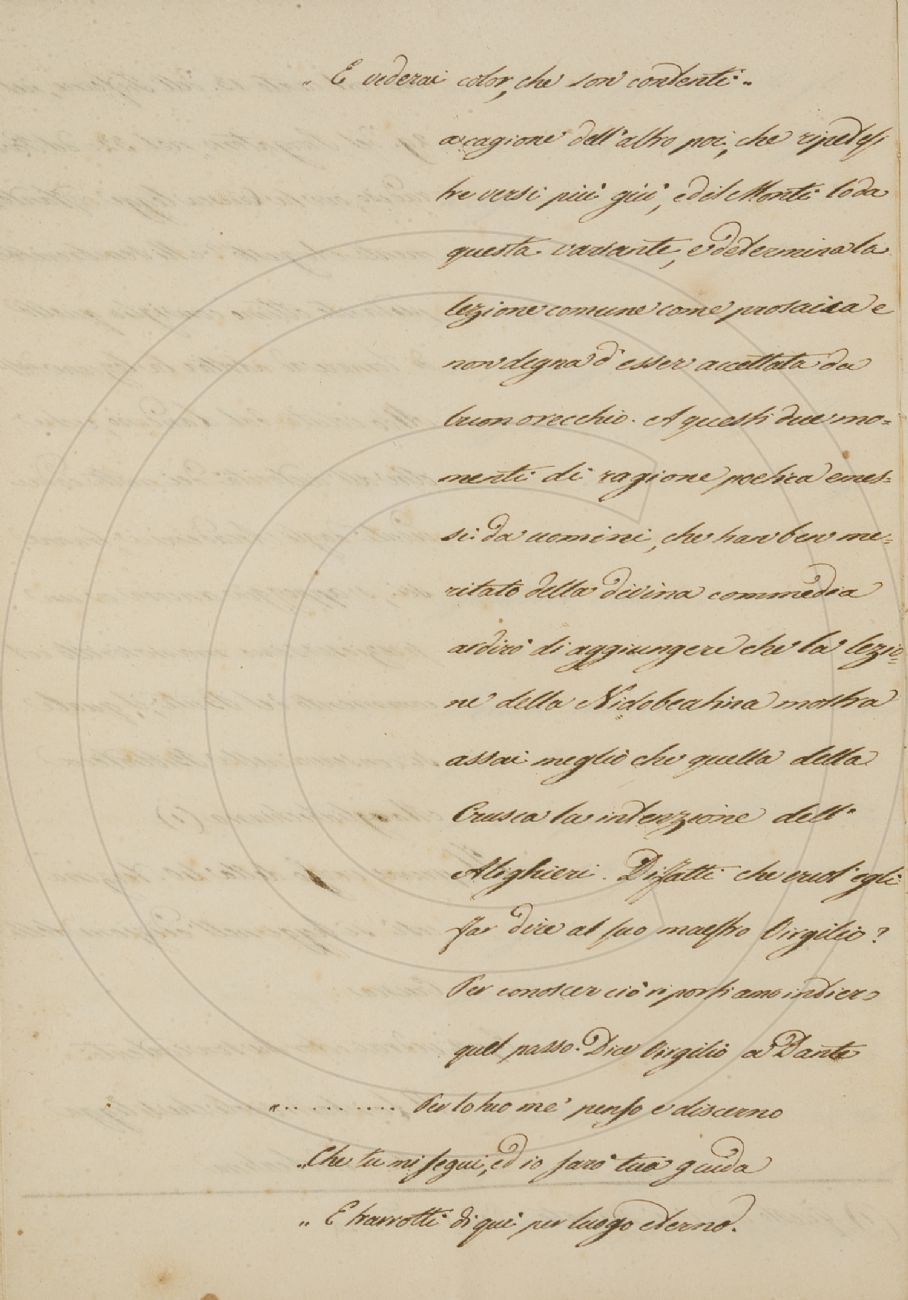 „ E vederai color, che son contenti „
a cagione dell'altro poi, che ripetesi
tre versi più giù, ed il Monti loda
questa variante, e determina la
lezione comune come prosaica e
non degna d'esser accettata da
buon orecchio. A questi due mo=
menti di ragione poetica emes=
si da uomini, che han ben me=
ritato della divina commedia
ardirò di aggiungere che la lezio=
ne della Nidobeatina mostra
assai meglio che quella della
Crusca la intenzione dell'
Alighieri. Difatti che vuol'egli
far dire al suo maestro Virgilio?
Per conoscer ciò riportiamo intier
quel passo. Dice Virgilio a Dante
„ . . . . . . . . . Per lo tuo me' penso e discerno
„ Che tu mi segui, ed io sarò tua guida
„ E trarrotti di qui per luogo eterno.